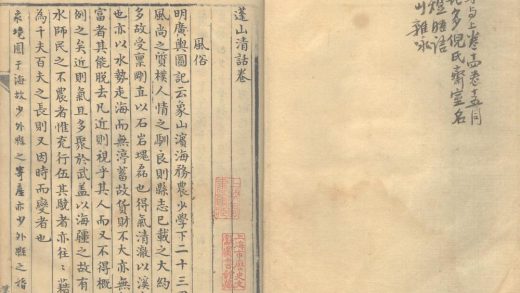 蓬山清話卷
風俗
明廣輿圖記云象山濱海務農少學下二十三
風尚之質樸人情之馴良則縣志已載之大約
多故受稟剛直以石岩塊磊也得氣清澈以溪
也亦以水勢走海而無渟蓄故貨財不大亦無
富者其能脫去凡近則視乎其人而又不得概
例之矣近則氣習多聚於武蓋以海疆之故有
水師民之不農者惟充行伍其駿者亦往往藉
為千夫百夫之長則又因時而變者也
象境囿于海故少外雖之寄產亦少外雖之
上卷 卷五同
多倪氏齋室名
語
山雜咏